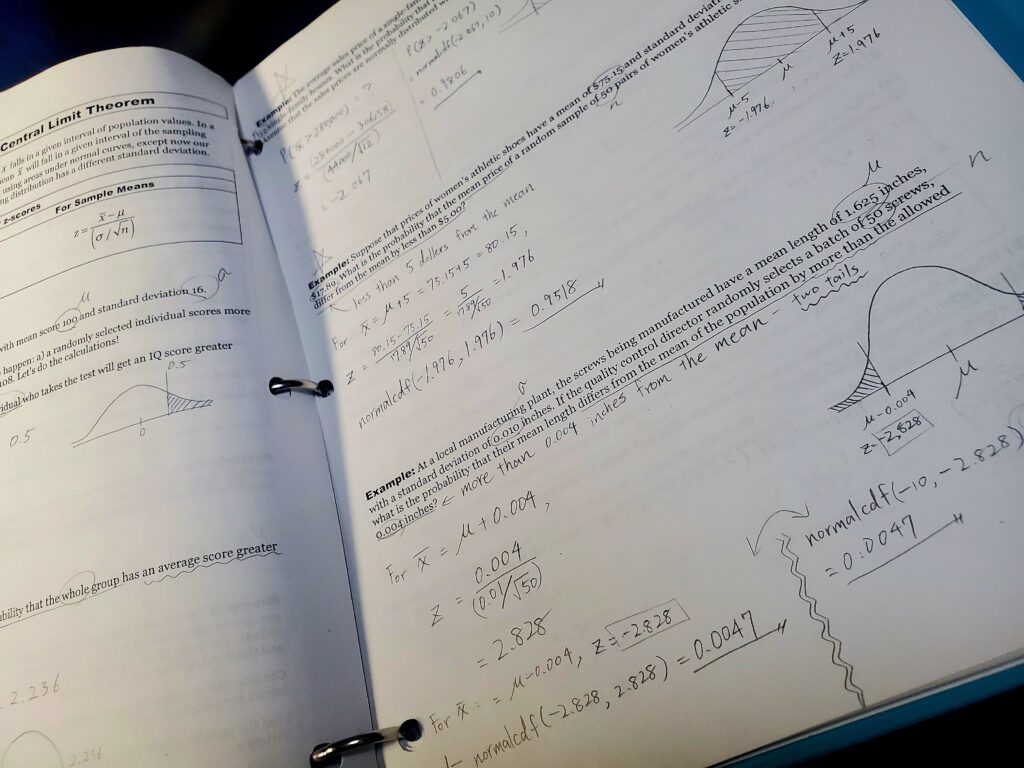 Central Limit Theorem
X falls in a given interval of population values. In a
X̄ will fall in a given interval of the sampling
using areas under normal curves, except now our
distribution has a different standard deviation.
z-scores For Sample Means
z = x̄ - μ / (σ / √n)
μ σ
with mean score 100 and standard deviation 16.
happen: a) a randomly selected individual scores more
108. Let's do the calculations!
who takes the test will get an IQ score greater
0.5
0.5
0
that the whole group has an average score greater
2.236
2.236
Example: The average sales price of a single-fam
What is the probability that
are normally distributed
P(x̄ > 280000) = ?
z = (280000 - 306258) / (44000/√12)
= -2.067
P(Z > -2.067)
= normalcdf(-2.067, 10)
= 0.9806
Example: Suppose that prices of women's athletic shoes have a mean of $75.15 and standard deviat
$17.89. What is the probability that the mean price of a random sample of 50 pairs of women's athletic s
differ from the mean by less than $5.00?
n
less than 5 dollers from the mean
For x̄ = μ+5 = 75.15+5 = 80.15,
z = 80.15-75.15 / 17.89/√50 = 5 / 17.89/√50 = 1.976
normalcdf(-1.976, 1.976) = 0.9518
μ-5
z=-1.976
μ
μ+5
z=1.976
μ
n
Example: At a local manufacturing plant, the screws being manufactured have a mean length of 1.625 inches,
σ
with a standard deviation of 0.010 inches. If the quality control director randomly selects a batch of 50 screws,
what is the probability that their mean length differs from the mean of the population by more than the allowed
0.004 inches? ← more than 0.004 inches from the mean - two tails
For x̄ = μ + 0.004,
z = 0.004 / (0.01/√50)
= 2.828
For x̄ = μ-0.004, z = -2.828
1- normalcdf(-2.828, 2.828) = 0.0047
μ-0.004
z=-2.828
μ
normalcdf(-10, -2.828)
= 0.0047